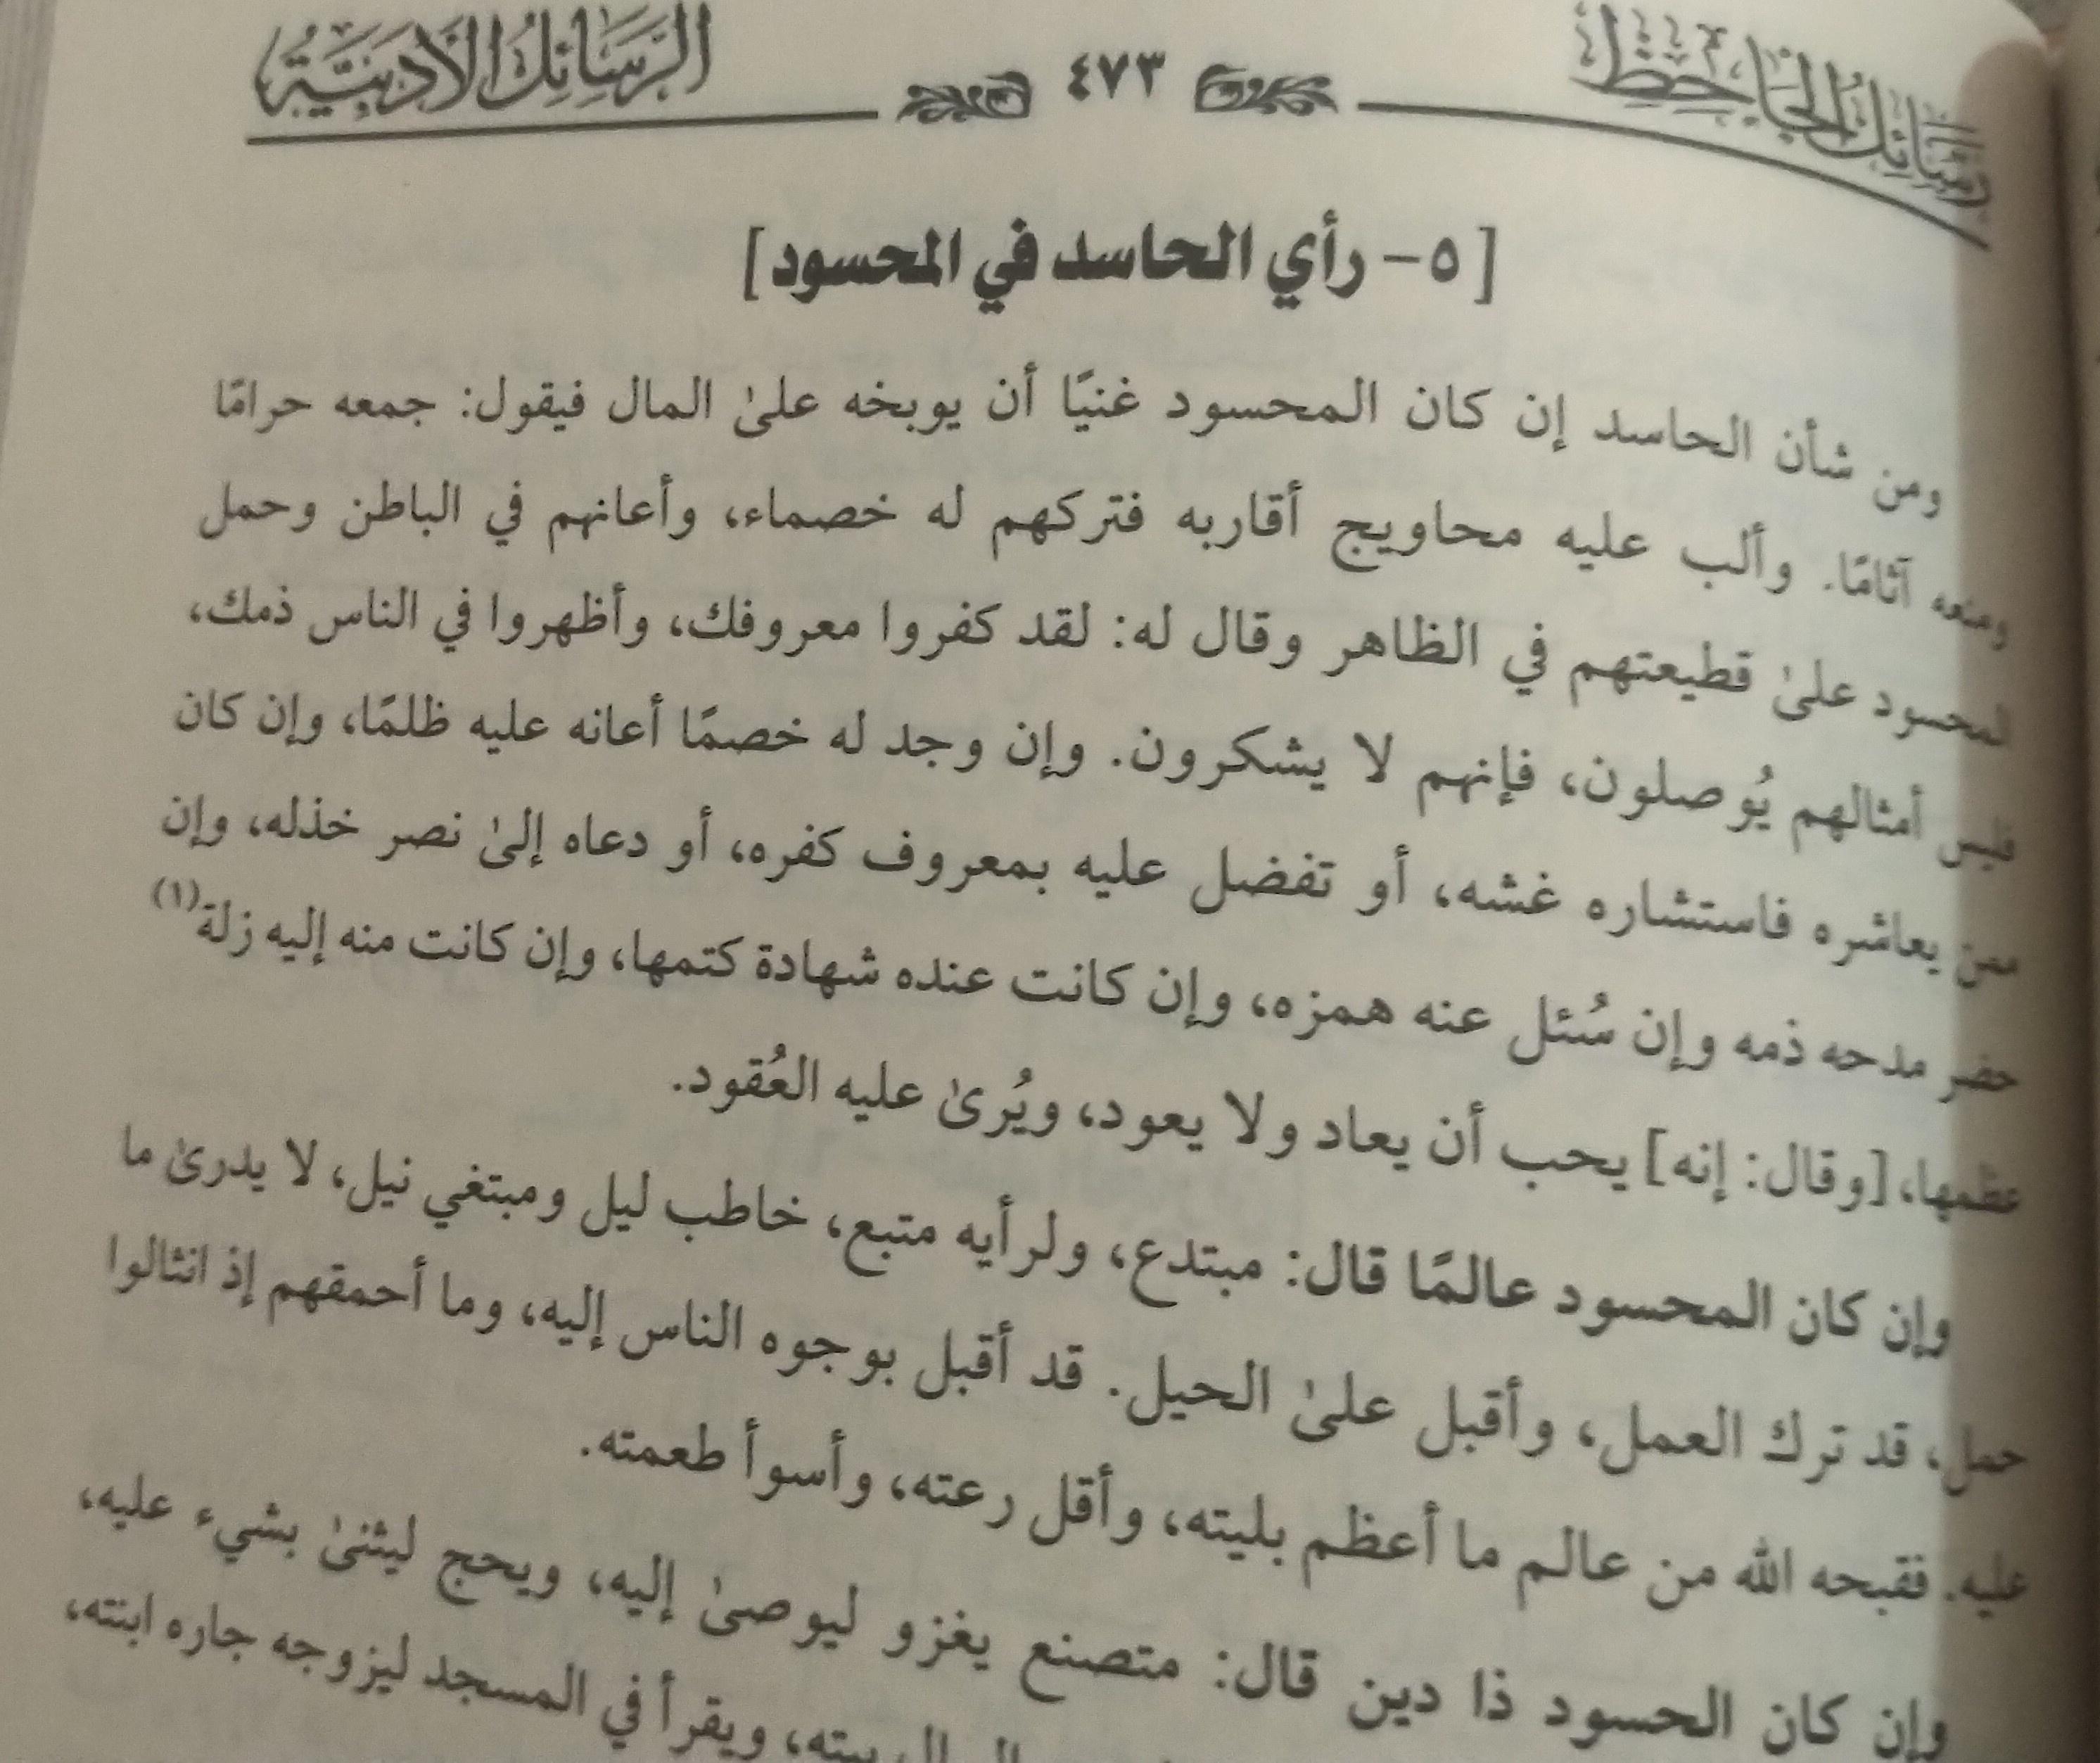 رسائل الجاحظ ٤٧٣ الرسائل الأدبية
[٥- رأي الحاسد في المحسود]
ومن شأن الحاسد إن كان المحسود غنيًا أن يوبخه علىٰ المال فيقول: جمعه حرامًا
ومنعه آثامًا. وألب عليه محاويج أقاربه فتركهم له خصماء، وأعانهم في الباطن وحمل
المحسود علىٰ قطيعتهم في الظاهر وقال له: لقد كفروا معروفك، وأظهروا في الناس ذمك،
فليس أمثالهم يُوصلون، فإنهم لا يشكرون. وإن وجد له خصمًا أعانه عليه ظلمًا، وإن كان
ممن يعاشره فاستشاره غشه، أو تفضل عليه بمعروف كفره، أو دعاه إلىٰ نصر خذله، وإن
حضر مدحه ذمه وإن سُئل عنه همزه، وإن كانت عنده شهادة كتمها، وإن كانت منه إليه زلة(١)
عظمها، [وقال: إنه] يحب أن يعاد ولا يعود، ويُرىٰ عليه العُقود.
وإن كان المحسود عالمًا قال: مبتدع، ولرأيه متبع، خاطب ليل ومبتغي نيل، لا يدرىٰ ما
حمل، قد ترك العمل، وأقبل علىٰ الحيل. قد أقبل بوجوه الناس إليه، وما أحمقهم إذ انثالوا
عليه. فقبحه الله من عالم ما أعظم بليته، وأقل رعته، وأسوأ طعمته.
وإن كان الحسود ذا دين قال: متصنع يغزو ليوصىٰ إليه، ويحج ليثنىٰ بشيء عليه،
بيته، ويقرأ في المسجد ليزوجه جاره ابنته،